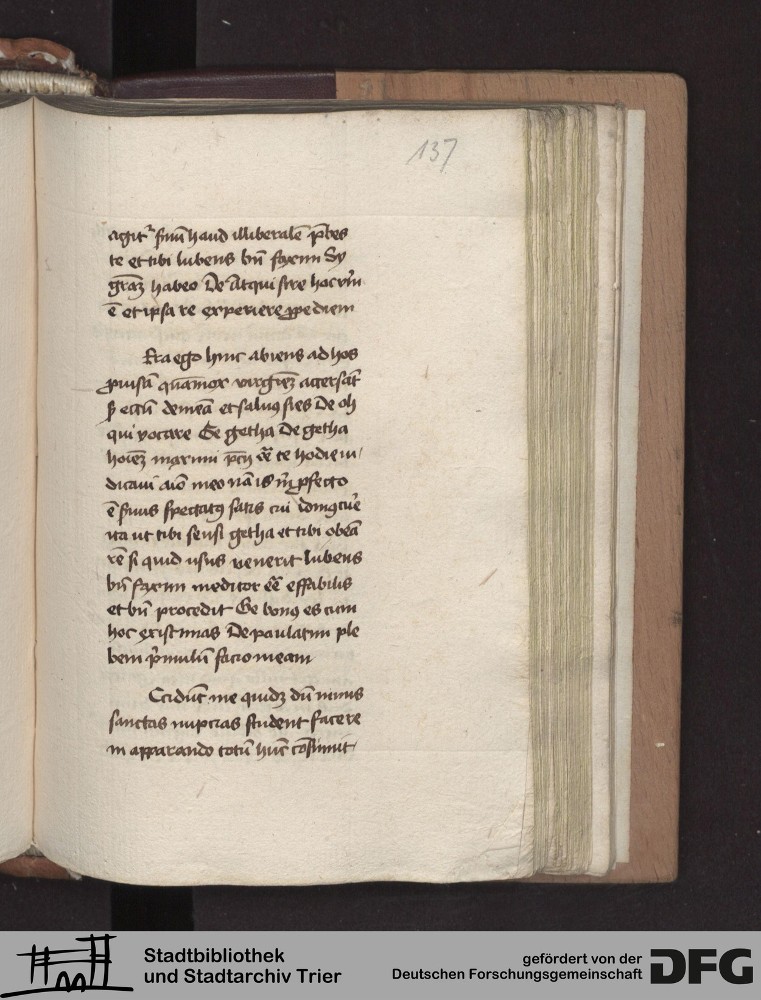 137
agit᷑ s̄uū haud illiberalē p̄bes
te et tibi lubens bn̄ faxim Sy
gr̄aꝫ habeo De Atqui syre hoc ver̄
ē et ipsa re experiere ꝓpediem
Era ego hinc abiens ad hos
ꝓuisā quāmox virginēꝫ accersāt
sꝫ eccū demeā et saluꝯ sies De oh
qui vocare Ge getha De getha
hoīēꝫ maximi p̄cii eē te hodie iu/
dicaui aīo meo nā is m̄ ꝓfecto
ē s̄uus spectatꝯ satis cui dōinꝯ cur̄e
ita ut tibi sensi getha et tibi obeā
rē si quid usus venerit lubens
bn̄ faxim meditor eē effabilis
et bn̄ procedit Ge bonꝯ es cum
hoc existimas De paulatim ple
bem p̄mulū facio meam
Ccidūt me quidꝫ dū nimis
sanctas nupcias student facere
in apparando totū hūc cōsūmūt
Stadtbibliothek
und Stadtarchiv Trier
gefördert von der
Deutschen Forschungsgemeinschaft
DFG